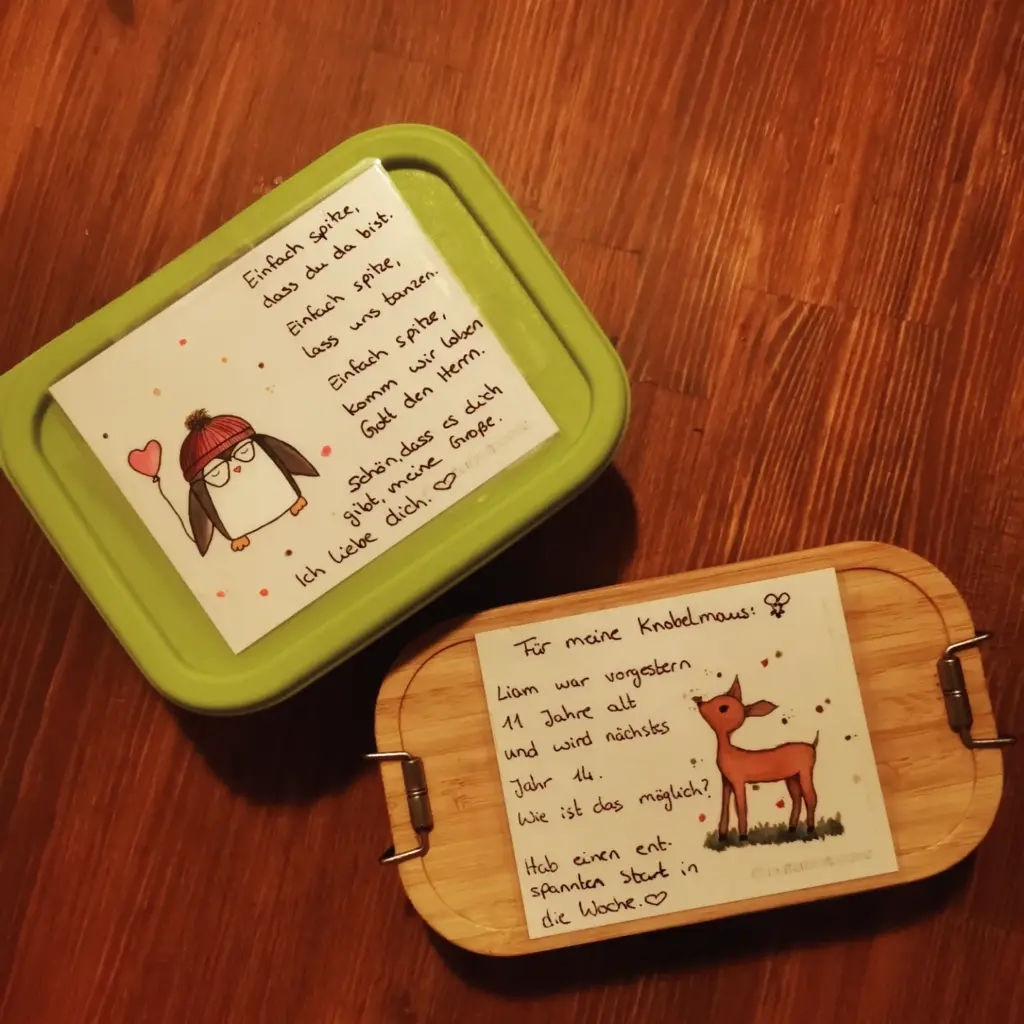 Einfach spitze,
dass du da bist.
Einfach spitze,
lass uns tanzen.
Einfach spitze,
komm wir loben
Gott den Herrn.
Schön, dass es dich
gibt, meine Große.
Ich liebe dich. ♡
Für meine Knobelmaus:
Liam war vorgestern
11 Jahre alt
und wird nächstes
Jahr 14.
Wie ist das möglich?
Hab einen ent-
spannten Start in
die Woche. ♡